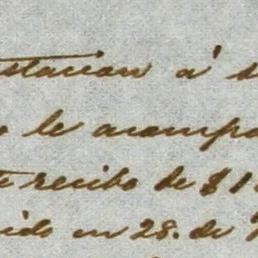 estacion á s
o le acompa
te recibo de $1
ido en 28. de